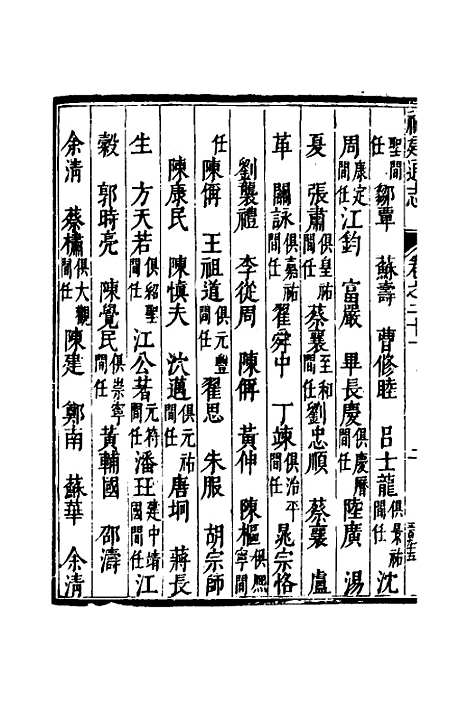 福建通志 卷之二十一
聖間任 鄒覃 蘇壽 曹修睦 呂士龍俱景祐間任 沈
周康定間任 江鈞 富嚴 畢長慶俱慶曆間任 陸廣 湯
夏 張肅俱皇祐間任 蔡襄至和間任 劉忠順 蔡襄 盧
革 關詠俱嘉祐間任 翟舜中 丁竦俱治平間任 晁宗恪
劉襲禮 李從周 陳偁 黃仲 陳樞俱熙寧間
任 陳偁 王祖道俱元豐間任 翟思 朱服 胡宗師
陳康民 陳慎夫 沈邁俱元祐間任 唐坰 蔣長
生 方天若俱紹聖間任 江公著元符間任 潘玨建中靖國間任 江
穀 郭時亮 陳覺民俱崇寧間任 黃輔國 邵濤
余清 蔡橚俱大觀間任 陳建 鄭南 蘇華 余清